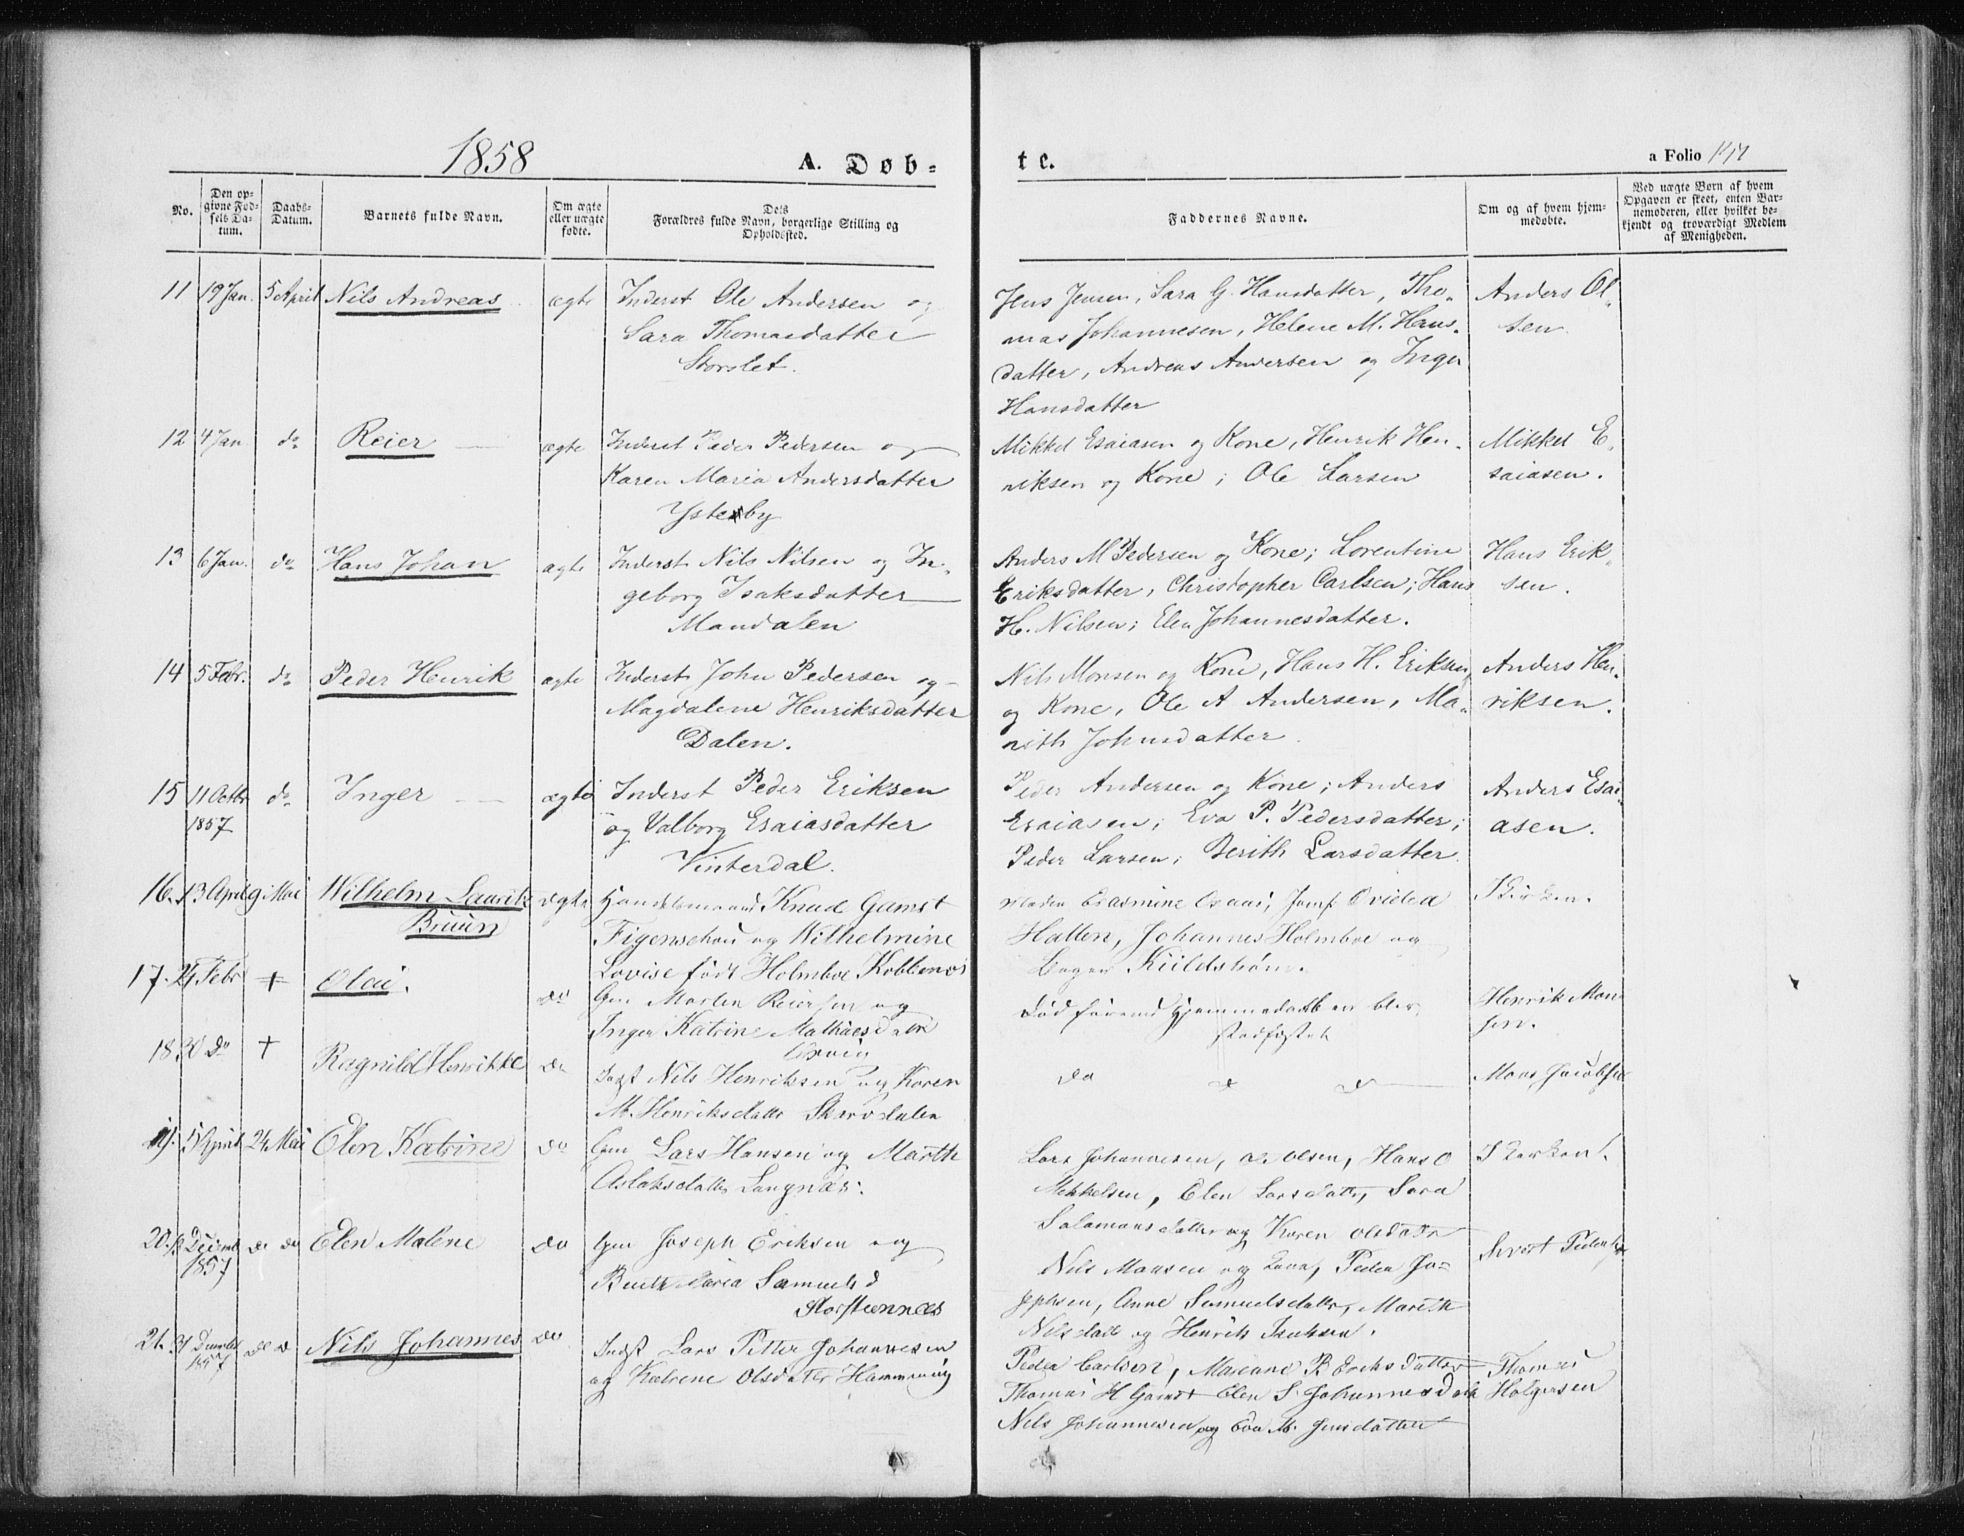 1858
A. Døb-
te.
a Folio
No.
Den op-
givne Fød-
sels Da-
tum.
Daabs-
Datum.
Barnets fulde Navn.
Om ægte
eller uægte
fødte.
Dets
Forældres fulde Navn, borgerlige Stilling og
Opholdssted.
Faddernes Navne.
Om og af hvem hjem-
medøbte.
Ved uægte Børn af hvem
Opgaven er skeet, enten Bar-
nemoderen, eller hvilket be-
kjendt og troværdigt Medlem
af Menigheden.
11 19 Jan. 5 April Nils Andreas ægte
Inderst Ole Andersen og
Sara Thomasdatter
Storslet.
Jens Jensen, Sara G. Hansdatter, Tho-
mas Johannesen, Helene M. Hans-
datter, Andreas Andersen og Inger
Hansdatter
Anders Ol-
sen
12 4 Jan do Reier ægte
Inderst Peder Pedersen og
Karen Maria Andersdatter
Ysteby
Mikkel Esaiasen og Kone, Henrik Hen-
riksen og Kone; Ole Larsen
Mikkel E-
saiasen.
13 6 Jan. do Hans Johan ægte
Inderst Nils Nilsen og In-
geborg Isaksdatter
Mandalen
Anders M Pedersen og Kone; Lorentine
Eriksdatter, Christopher Carlsen; Hans
H. Nilsen; Elen Johannesdatter.
Hans Erik-
sen.
14 5 Febr. do Peder Henrik ægte
Inderst John Pedersen og
Magdalene Henriksdatter
Dalen.
Nils Monsen og Kone, Hans H. Eriksen
og Kone, Ole A Andersen, Ma-
rith Johnsdatter
Anders Hen-
riksen.
15 11 Octbr 1857 do Inger ægte
Inderst Peder Eriksen
og Valborg Esaiasdatter
Vinterdal.
Peder Andersen og Kone; Anders
Esaiasen; Eva P. Pedersdatter;
Peder Larsen; Berith Larsdatter.
Anders Esai-
asen.
16. 13 April 9 Mai Wilhelm Lauritz
Bruun
ægte
Handelsmand Knud Gamst
Figenschou og Wilhelmine
Lovise født Holmboe Koblenæs
Hatten, Johannes Holmboe og
I Kirken.
17. 24 Febr + Olai. do
Gm Morten Reiersen og
Inger Katrine Mathiesdatr
Død førend Hjemmedaaben blev
stadfæstet
Henrik Mon-
sen.
18 30 do + Ragnild Henrikke do
Indst Nils Henriksen og Karen
M. Henriksdatr Skrovdalen
do
Mons Jacobsen
19. 5 April 24 Mai Elen Katrine do
Gm Lars Hansen og Marith
Aslaksdatter Langnæs.
Lars Johannesen, Ole Olsen, Hans O
Mikkelsen, Elen Larsdatter, Sara
Salamonsdatter og Karen Olsdatr
I Kirken.
20. Decemb 1857 do do Elen Malene do
Gm Joseph Eriksen og
Berith Maria Samuelsd
Storstennes
Nils Monsen og Kone, Peder Jo-
sephsen, Anne Samuelsdatter, Marith
Nilsdatt og Henrik Isaksen.
Sivert Pedersen
21. 31 Decemb 1857 do Nils Johannes do
Indst Lars Petter Johannesen
og Katrine Olsdatter Hamning
Peder Carlsen, Mariane P. Eriksdatter
Thomas H Gamst Elen S. Johannesdatr
Nils Johannesen og Eva M. Jensdatter
Thomas
Holgersen